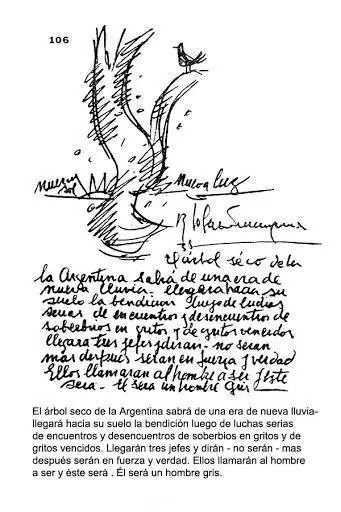 106
nuevo sol
nueva luz
B Solari Parravicini
38
El árbol séco de la
la Argentina sabrá de una era de
nueva lluvia. llegara hacia su
suelo la bendicion luego de luchas
serias de encuentros y desencuentros de
soberbios en gritos y de gritos vencidos
llegara tres jefes y diran - no seran
mas despues seran en fuerza y verdad
Ellos llamaran al hombre a ser y este
sera - El sera un hombre gris
El árbol seco de la Argentina sabrá de una era de nueva lluvia-
llegará hacia su suelo la bendición luego de luchas serias
de encuentros y desencuentros de soberbios en gritos y de
gritos vencidos. Llegarán tres jefes y dirán - no serán - mas
después serán en fuerza y verdad. Ellos llamarán al hombre
a ser y éste será . Él será un hombre gris.